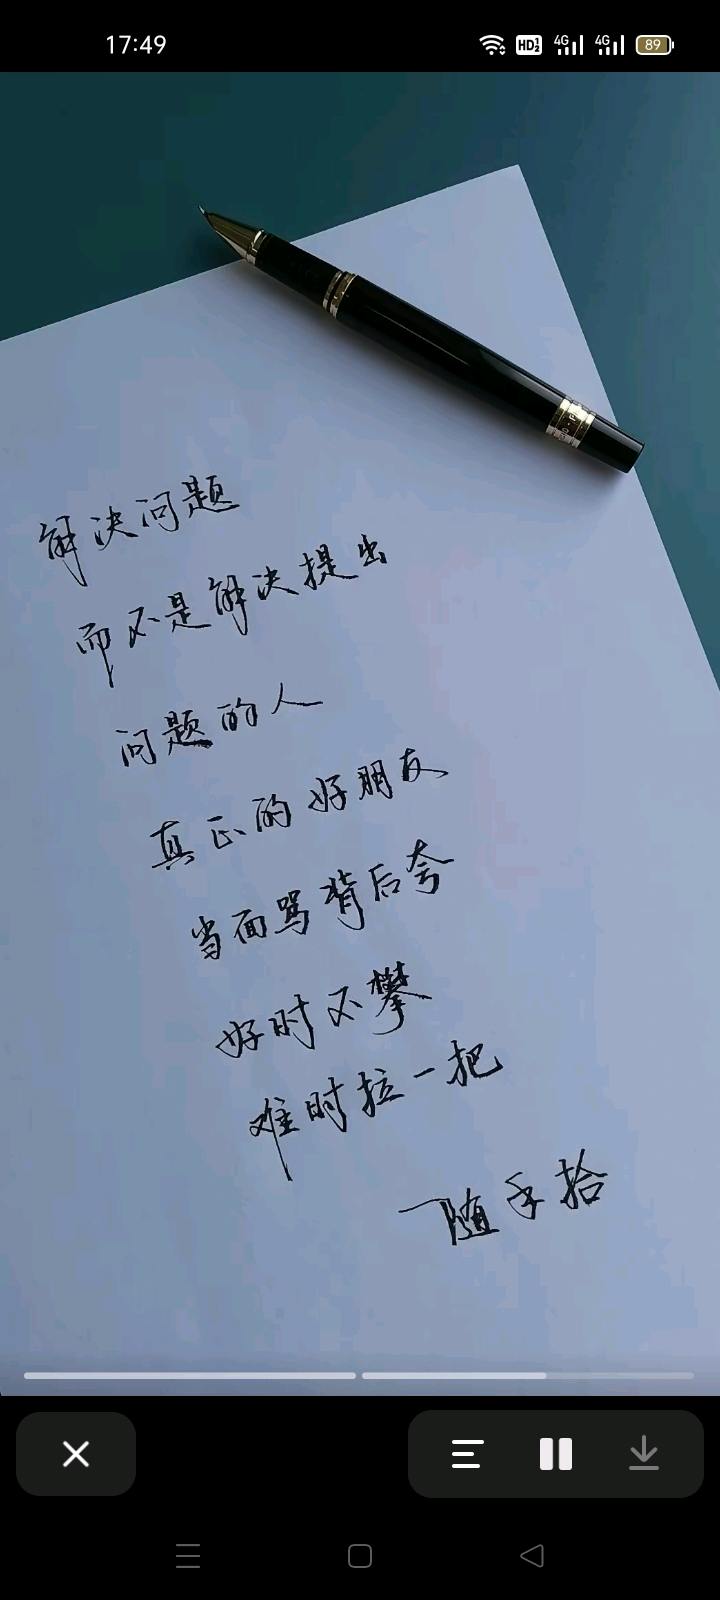 17:49
HD 1 2
4G
4G
89
解决问题
而不是解决提出
问题的人
真正的好朋友
当面骂背后夸
好时不攀
难时拉一把
一随手拾